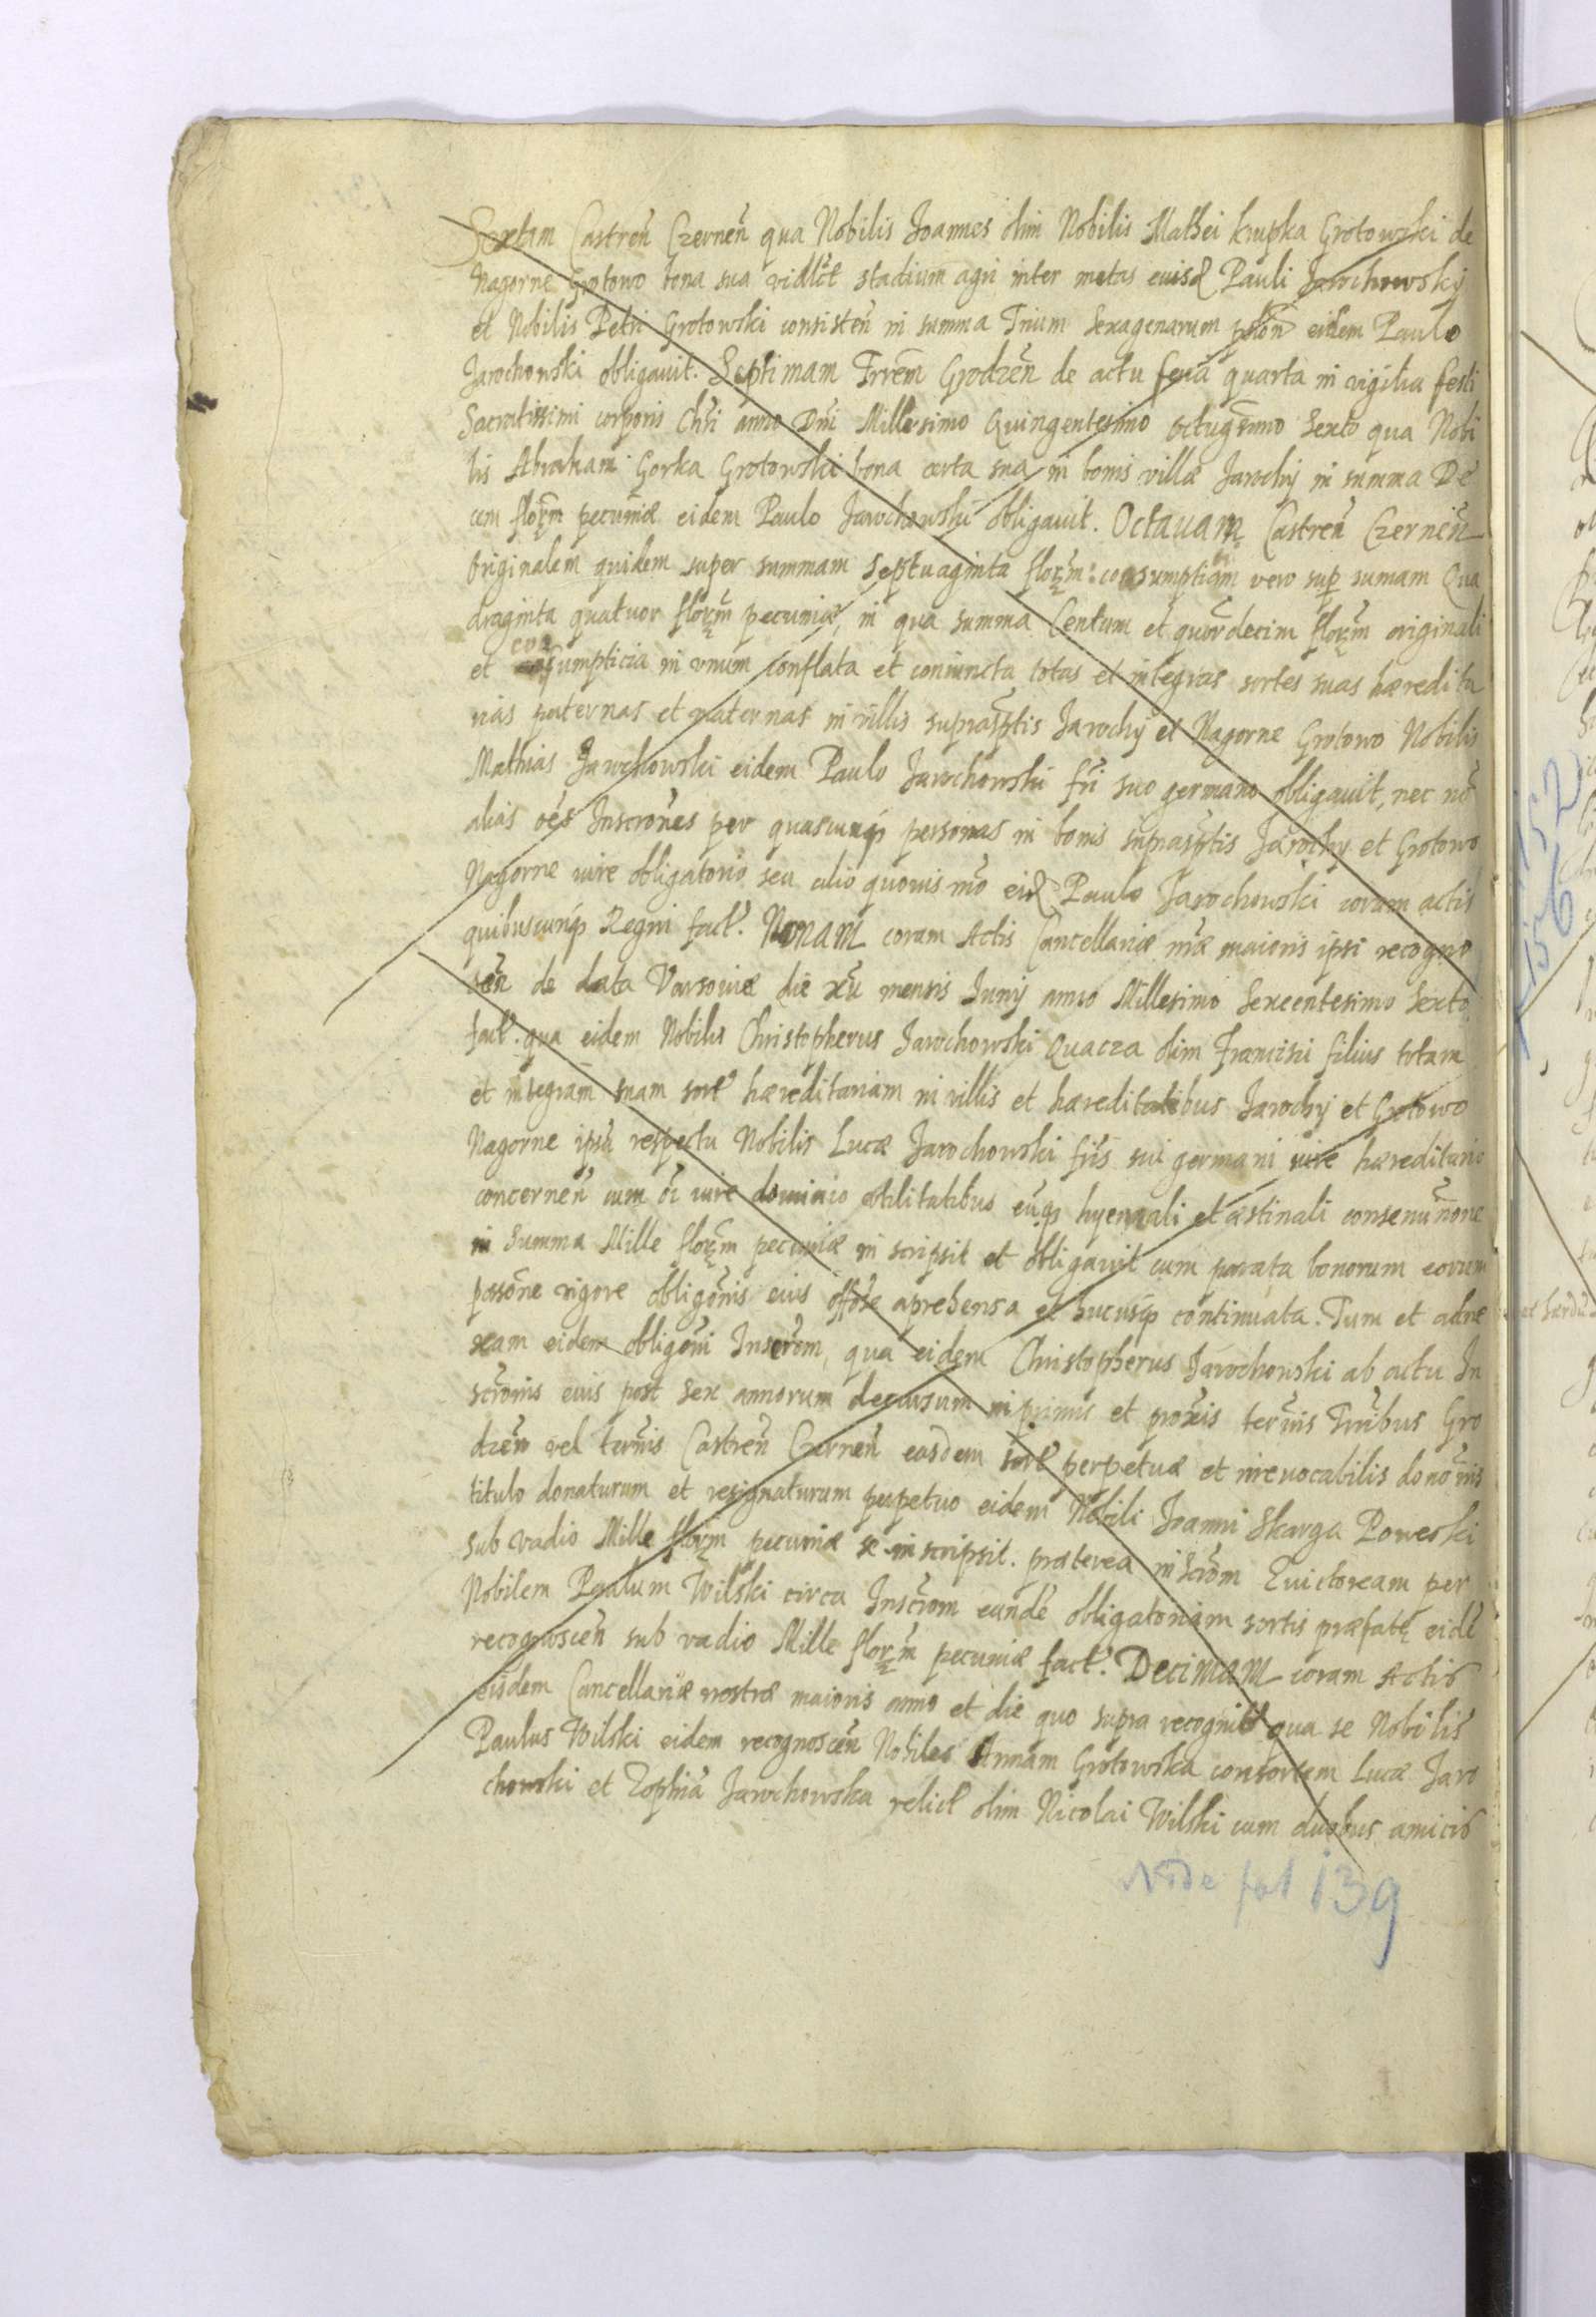 Sextam Castreñ Czerneñ qua Nobilis Joannes olim Nobilis Mathei krupka Grotowski de
Nagorne Grotowo bona sua vidlčt stadium agri inter metas eiusd Pauli Jarochowskÿ
et Nobilis Petri Grotowski consisteñ in summa Trium sexagenarum eidem Paulo
Jarochowski obligauit. Septimam Trrem̃ Grodzeñ de actu feria quarta in vigilia festi
Sacratissimi corporis Chr̃i anno Dñi Millesimo Quingentesimo octugesimo Sexto qua Nobi
lis Abraham Gorka Grotowski bona certa sua in bonis villæ Jarochÿ in summa De
cem flor̃m pecuniæ eidem Paulo Jarochowski obligauit. Octauam Castreñ Czerneñ
Originalem quidem super summam septuaginta flor̃m: consumptiam vero sup̱ sumam Qua
draginta quatuor flor̃m pecuniæ, in qua summa Centum et quor̃decim flor̃m originali
et consumpticia in vnum conflata et coniuncta totas et integras sortes suas hæredita
rias paternas et maternas in villis suprasp̃tis Jarochÿ et Nagorne Grotowo Nobilis
Mathias Jarochowski eidem Paulo Jarochowski fr̃i suo germano obligauit, nec nõ
alias oẽs Inscrões per quascunq̃ personas in bonis suprasp̃tis Jarochÿ et Grotowo
Nagorne iure obligatorio seu alio quouis mõ eid Paulo Jarochowski coram actis
quibuscunq̃ Regni fact. Nonam coram Actis Cancellariæ nr̃æ maioris ipsi recogno
sceñ de data Varsouiæ die mensis Junÿ anno Millesimo Sexcentesimo Sexto
fact. qua eidem Nobilis Christopherus Jarochowski Quacza olim Francisci filius totam
et integram suam sort hæreditariam in villis et hæreditatibus Jarochÿ et Grotowo
Nagorne ipsũ respectu Nobilis Lucæ Jarochowski fr̃is sui germani iure hæreditario
concerneñ cum õi iure dominio vtilitatibus eũq̃ hyemali et æstiuali conseminãone
in Summa Mille flor̃m pecuniæ inscripsit et obligauit cum parata bonorum eorum
possõne vigore obligõnis eius offõse aprehensa et hucusq̃ continuata. Tum et adne
xam eidem obligõni Inscrõem, qua eidem Christopherus Jarochowski ab actu In
scrõnis eius post sex annorum decursum in primis et prox̃is termis Trr̃ibus Gro
dzeñ vel ter̃mis Castreñ Czerneñ easdem sort perpetuæ et irreuocabilis donõnis
titulo donaturum et resignaturum perpetuo eidem Nobili Joanni Skarga Poweski
sub vadio Mille flor̃m pecuniæ se inscripsit. præterea inscrõm Euictoream per
Nobilem Paulum Wilski circa Inscrõm eandẽ obligatoriam sortis præfatę eidẽ
recognosceñ sub vadio Mille flor̃m pecuniæ fact. Decimam coram Actis
eisdem Cancellariæ nostræ maioris anno et die quo supra recognit qua se Nobilis
Paulus Wilski eidem recognosceñ Nobiles Annam Grotowska consortem Lucæ Jaro
chowski et Zophiã Jarochowska relict olim Nicolai Wilski cum duobus amicis
Vide fol 139
152
156